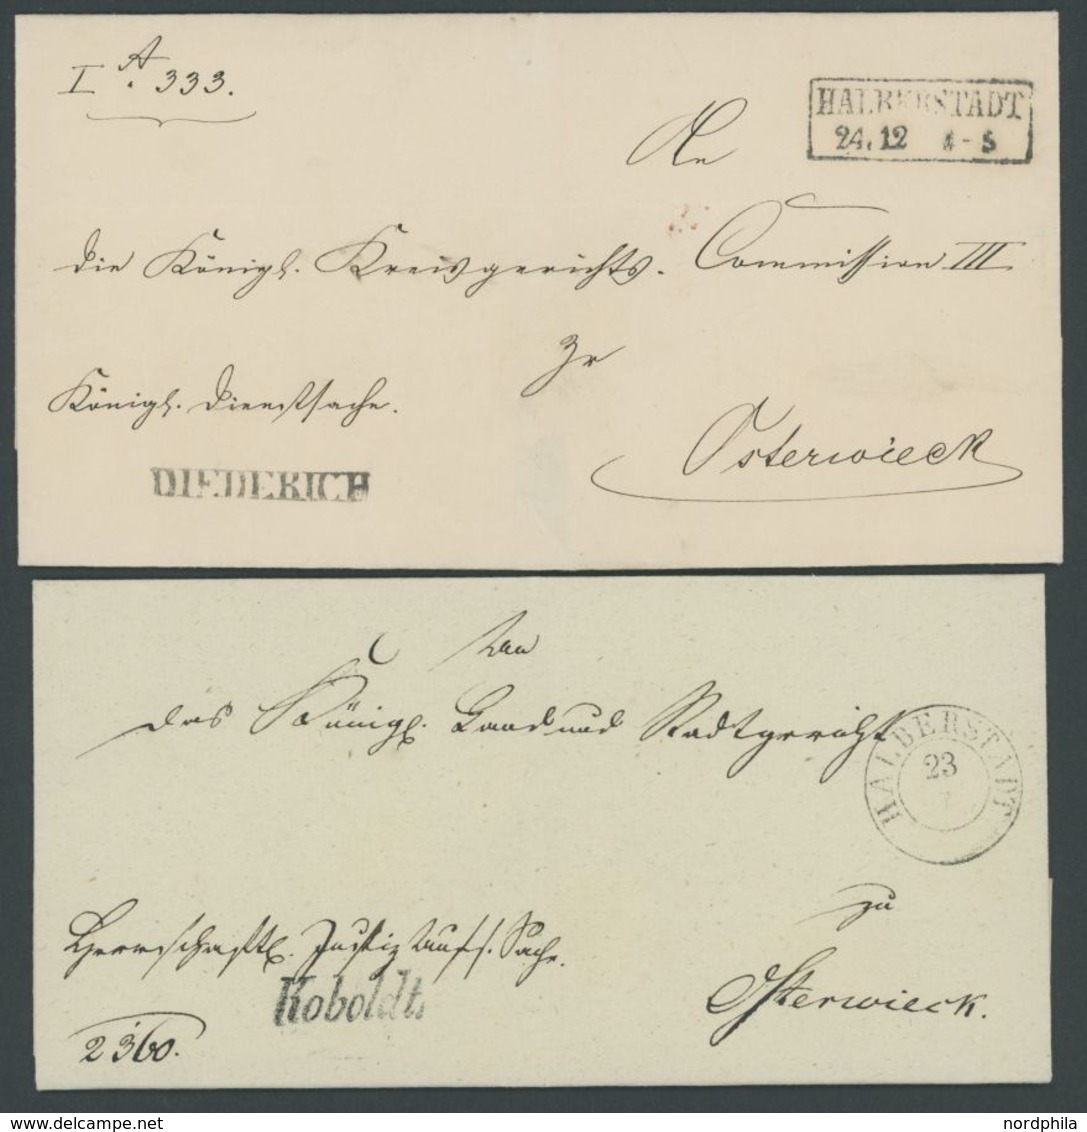 I A. 333.
HALBERSTADT
24. 12 4-5
An
die Königl. Kreisgerichts-Commission III
zu
Königl. Dienstsache.
Osterwieck
DIEDERICH
An
das Königl. Land und Stadtgericht
HALBERSTADT
23
zu
Herrschaftl. Justiz Aufs. Sache.
Koboldt.
Osterwieck.
2360.
nordphila